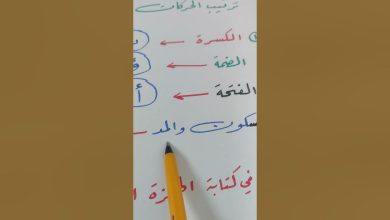 ترتيب الحركات
الكسرة ←
الضمة ←
الفتحة ← أ
سكون والمد
في كتابة الهمزة